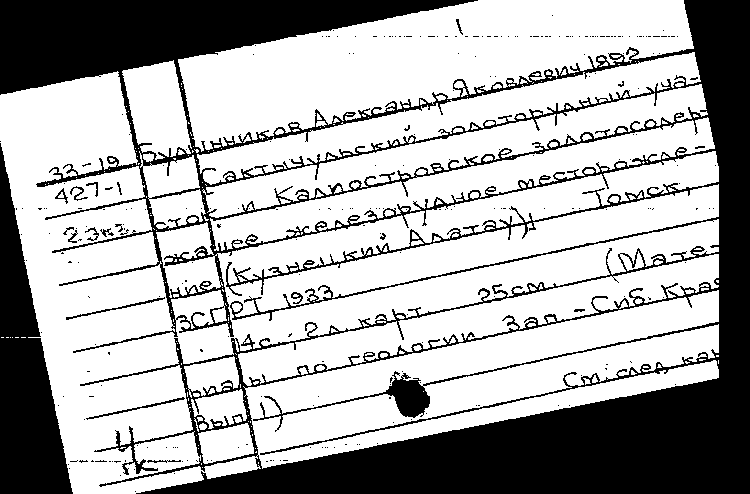 1
Булынников, Александр Яковлевич, 1892
33-19
427-1
2 экз.
Сактычульский золоторудный уча-
сток и Калпостровское золотосодер-
жащее железорудное месторожде-
ние (Кузнецкий Алатау); Томск,
ЗСГРТ, 1933.
14с.; 2 л. карт. 25см. (Мате-
риалы по геологии Зап.-Сиб. Края
вып. 1)
См. след кар
Ч
гк